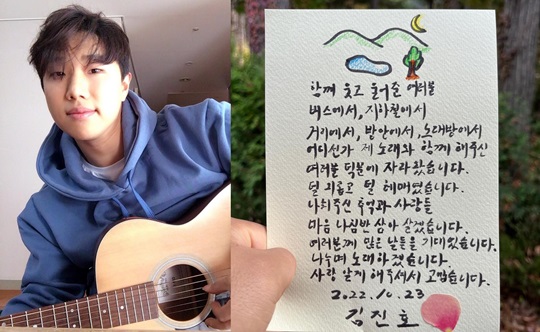 함께 웃고 울어준 여러분
버스에서, 지하철에서
거리에서, 방안에서, 노래방에서
어디선가 제 노래와 함께 해주신
여러분 덕분에 자라왔습니다.
덜 외롭고 덜 헤매었습니다.
나눠주신 추억과 사랑들
마음 나침반 삼아 살겠습니다.
여러분께 많은 날들을 기대있습니다.
나누며 노래하겠습니다.
사랑 알게 해주셔서 고맙습니다.
2022. 10. 23
김진호